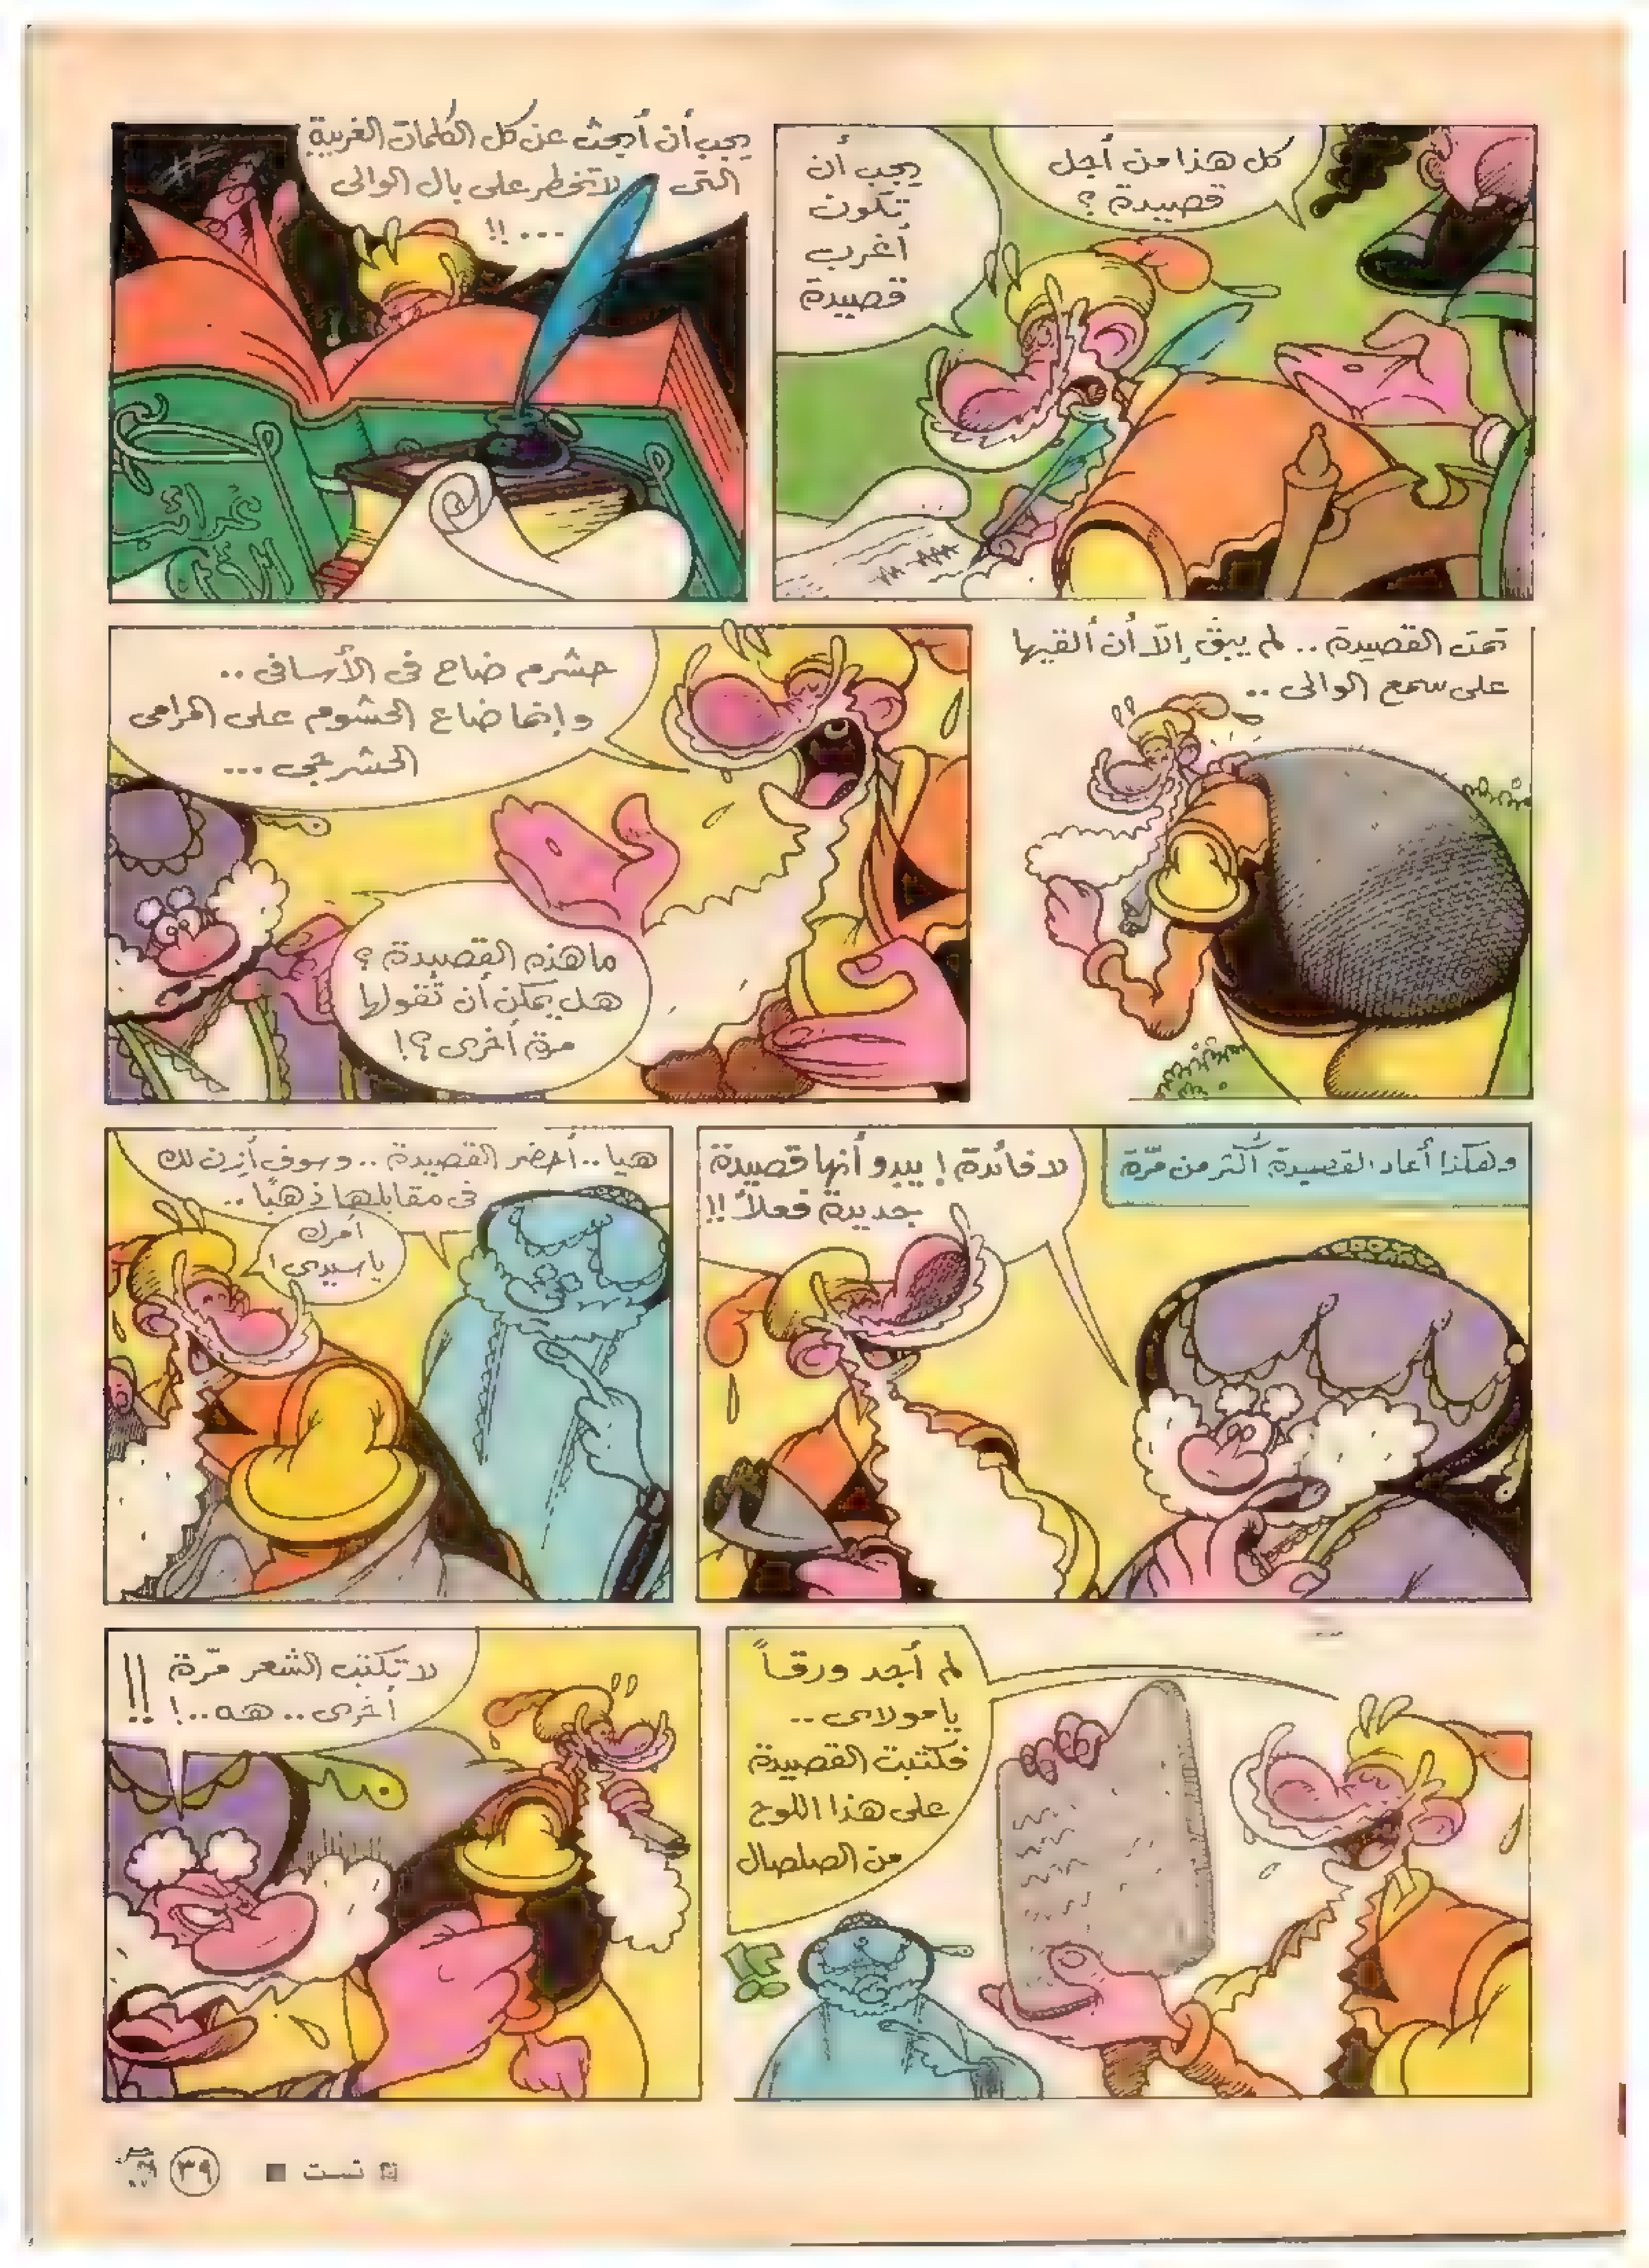 كل هذا من أجل
قصيدة ؟
يجب أن
تكون
أغرب
قصيدة
يجب أن أبحث عن كل الكلمات الغريبة
التى لا تخطر على بال الوالى
... !!
غرائب
تمت القصيدة .. لم يبق إلّا أن ألقيها
على سمع الوالى ..
حشرم ضاع فى الأسافى ..
وإنما ضاع الحشوم على المرامى
... 
ما هذه القصيدة ؟
هل يمكن أن تقولها
مرة أخرى ؟!
وهكذا أعاد القصيدة أكثر من مّرة
لا فائدة ! يبدو أنها قصيدة
جديدة فعلاً !!
هيا .. أحضر القصيدة .. وسوف أزن لك
فى مقابلها ذهبًا ..
أمرك
يا سيدى !
لم أجد ورقاً
يا مولاى ..
فكتبت القصيدة
على هذا اللوح
من الصلصال
!!
لا تكتب الشعر مّرة
أخرى .. هه .. ! !!
تمت
٣٩